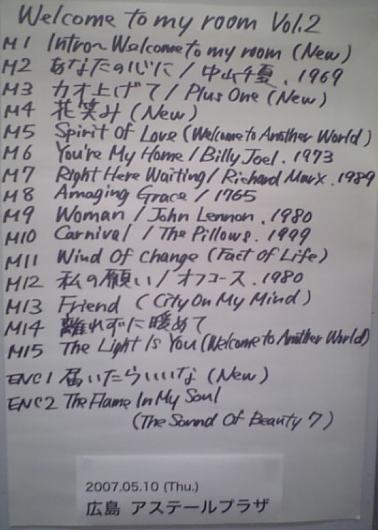 Welcome to my room Vol.2
M1 Intro~Welcome to my room (New)
M2 あなたの心に / 中山千夏 . 1969
M3 カオ上げて / Plus One (New)
M4 花笑み (New)
M5 Spirit Of Love (Welcome to Another World)
M6 You're My Home / Billy Joel . 1973
M7 Right Here Waiting / Richard Marx . 1989
M8 Amazing Grace / 1765
M9 Woman / John Lennon . 1980
M10 Carnival / The Pillows. 1999
M11 Wind Of Change (Fact of Life)
M12 私の願い / オフコース . 1980
M13 Friend (City On My Mind)
M14 離れずに暖めて
M15 The Light Is You (Welcome to Another World)
ENC1 届いたらいいな (New)
ENC2 The Flame In My Soul
(The Sound Of Beauty 7)
2007.05.10 (Thu.)
広島 アステールプラザ